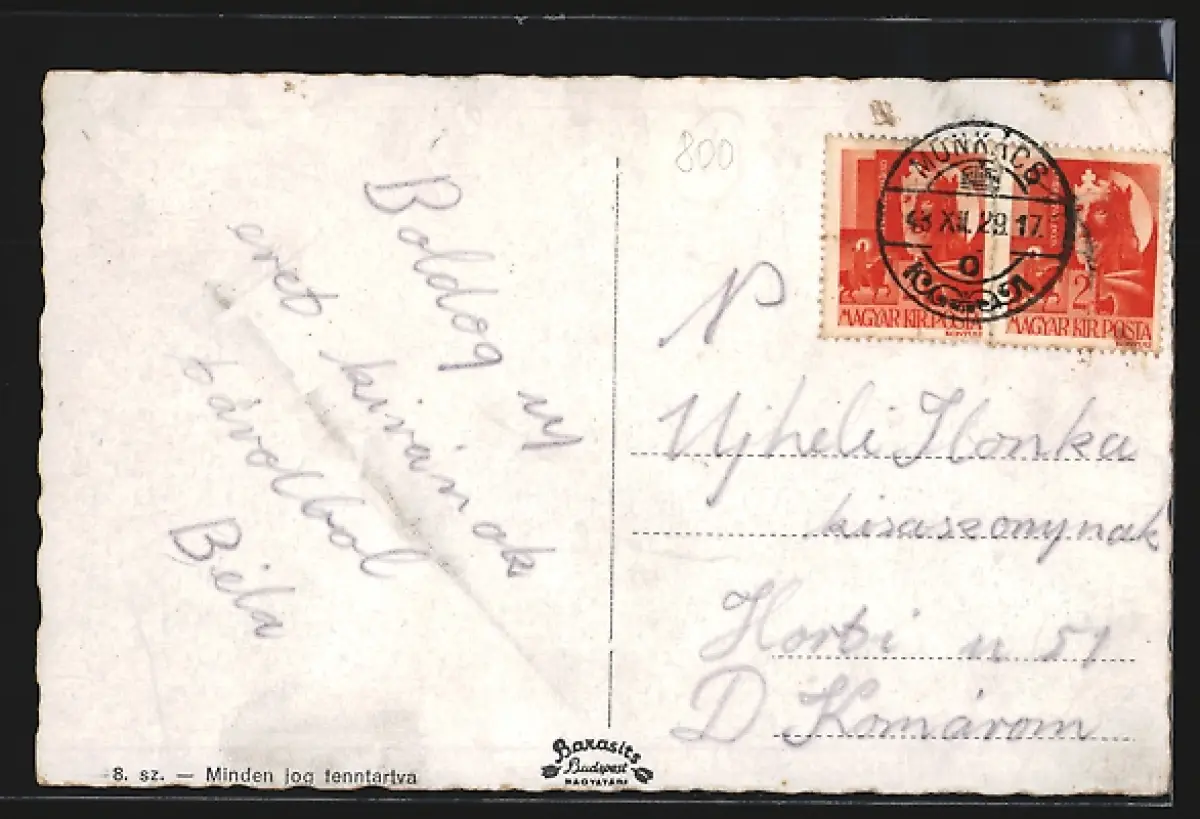 Boldog uj
evet kivánok
távolbol
Béla
800
MUNKÁCS
43 XII. 29. 17.
O
MAGYAR KIR. POSTA
2
MAGYAR KIR. POSTA
N
Ujheli Ilonka
kisaszonynak
Horti u 51
D Komárom
8. sz. — Minden jog fenntartva
Barasits
Budapest
NAGYATÁDI